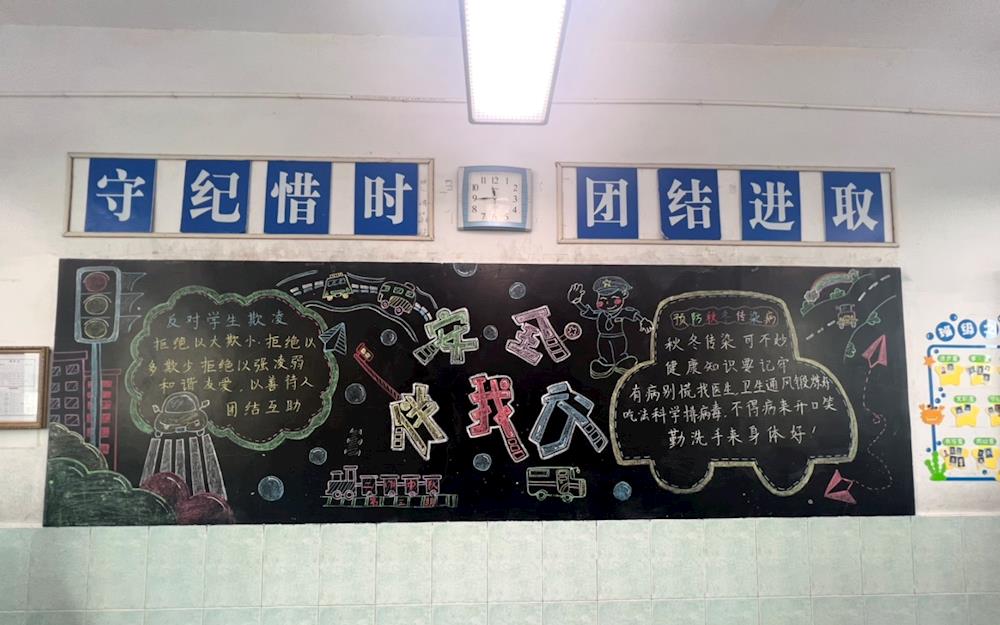 守纪惜时
团结进取
反对学生欺凌
拒绝以大欺小.拒绝以
多欺少拒绝以强凌弱
和谐友爱，以善待人
团结互助
安全
伴我行
预防秋冬传染病
秋冬传染可不妙
健康知识要记牢
有病别慌找医生,卫生通风锻炼好
吃法科学排病毒,不得病来开口笑
勤洗手来身体好!
班级